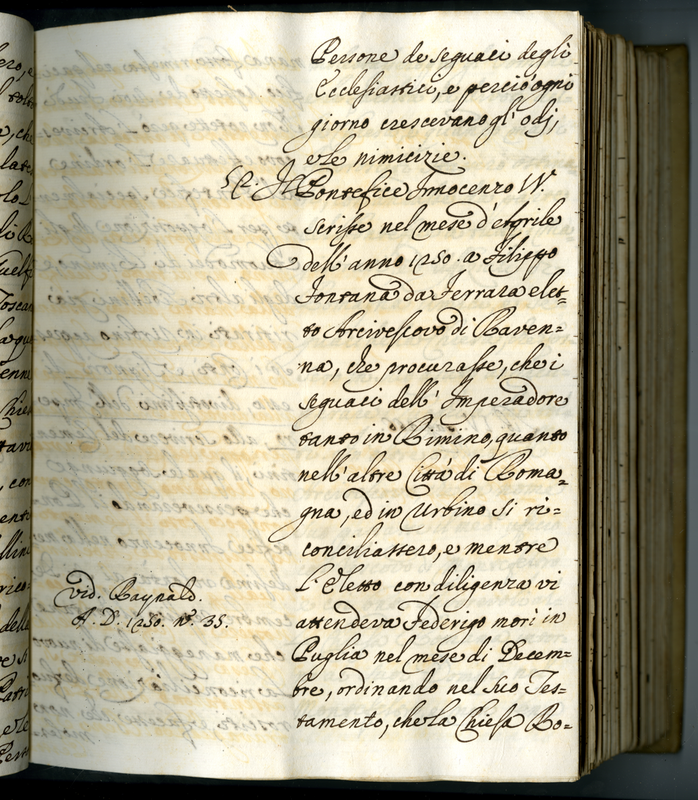 Persone de seguaci degli
Ecclesiastici, e perciò ogni
giorno crescevano gl' odj,
e le nimicizie.
Il Pontefice Innocenzo IV.
scrisse nel mese d'Aprile
dell' anno 1250. a Filippo
Fontana da Ferrara elet=
to Arcivescovo di Raven=
na, che procurasse, che i
seguaci dell' Imperadore
tanto in Rimino, quanto
nell' altre Città di Roma=
gna, ed in Urbino si ri=
conciliassero, e mentre
l' Eletto con diligenza vi
attendeva Federigo morì in
Puglia nel mese di Decem=
bre, ordinando nel suo Tes=
tamento, che la Chiesa Ro=
vid. Raynald.
A. D. 1250. n.º 35.